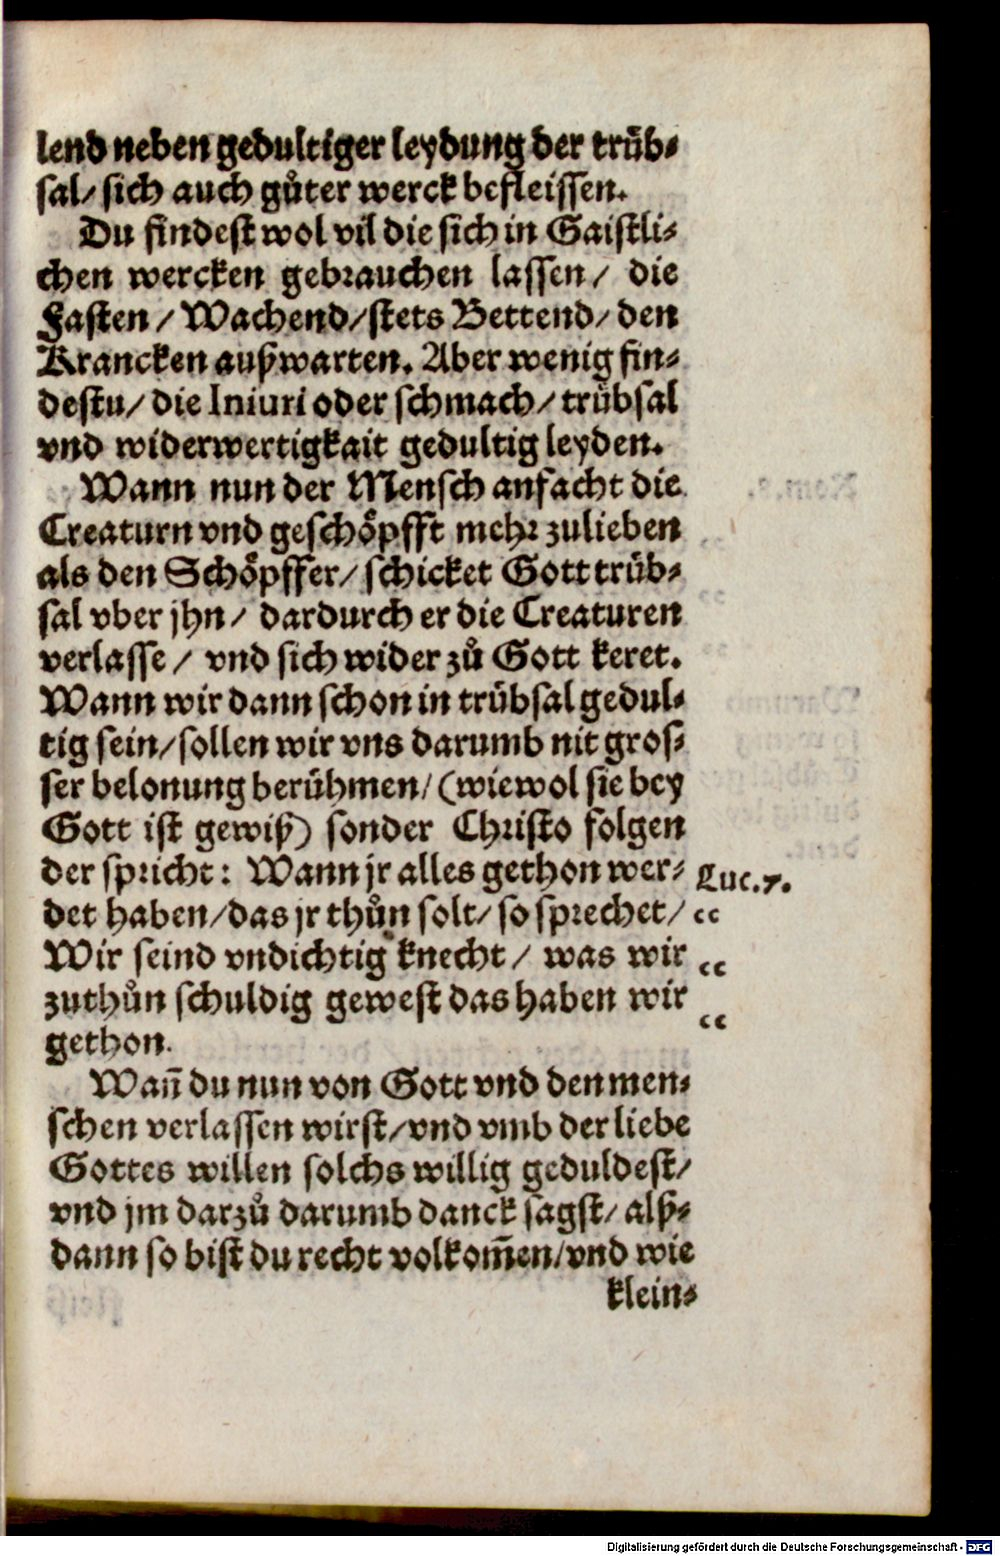 lend neben gedultiger leydung der truͤb⸗
sal/ sich auch guͦter werck befleissen.
Du findest wol vil die sich in Gaistli⸗
chen wercken gebrauchen lassen/ die
Fasten/ Wachend/ stets Bettend/ den
Krancken außwarten. Aber wenig fin⸗
destu/ die Iniuri oder schmach/ truͤbsal
vnd widerwertigkait gedultig leyden.
Wann nun der Mensch anfacht die
Creaturn vnd geschoͤpfft mehr zulieben
als den Schoͤpffer/ schicket Gott truͤb⸗
sal vber jhn/ dardurch er die Creaturen
verlasse/ vnd sich wider zuͦ Gott keret.
Wann wir dann schon in truͤbsal gedul⸗
tig sein/ sollen wir vns darumb nit gros⸗
ser belonung beruͤhmen/ (wiewol sie bey
Gott ist gewiß) sonder Christo folgen
der spricht: Wann jr alles gethon wer⸗ Luc.7.
det haben/ das jr thuͦn solt/ so sprechet/ “
Wir seind vndichtig knecht/ was wir “
zuthuͦn schuldig gewest das haben wir “
gethon.
Wañ du nun von Gott vnd den men⸗
schen verlassen wirst/ vnd vmb der liebe
Gottes willen solchs willig geduldest/
vnd jm darzuͦ darumb danck sagst/ alß⸗
dann so bist du recht volkom̃en/ vnd wie
klein⸗
Digitalisierung gefördert durch die Deutsche Forschungsgemeinschaft - DFG